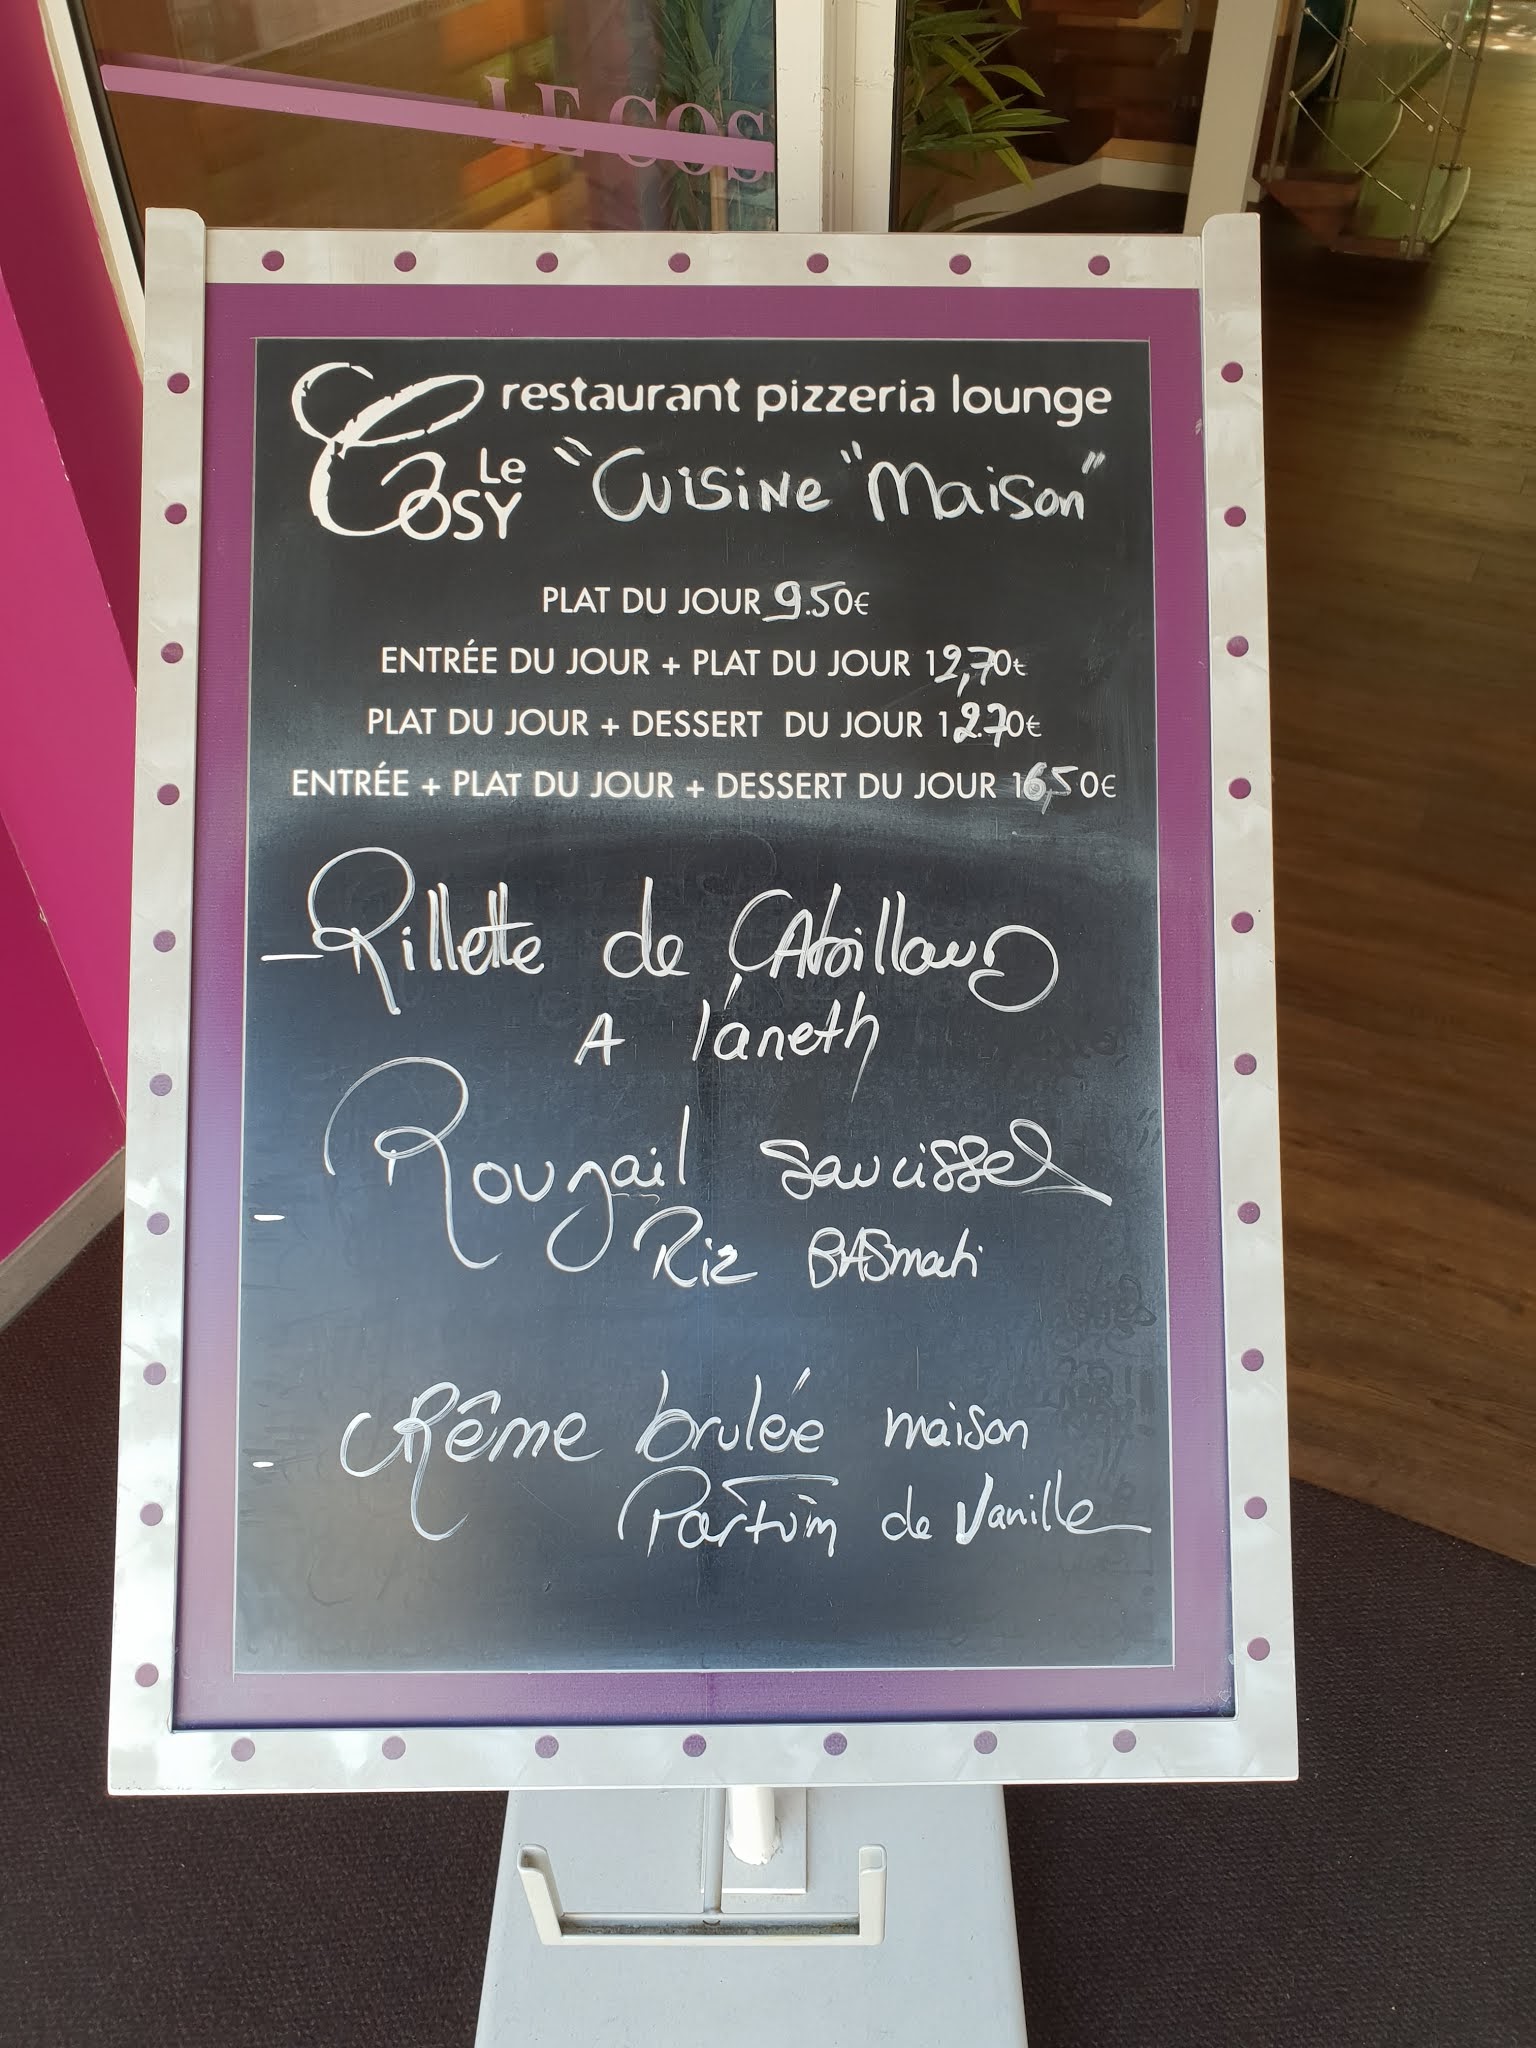 LE COS
restaurant pizzeria lounge
Le COSY
"Cuisine "Maison"
PLAT DU JOUR 9.50€
ENTRÉE DU JOUR + PLAT DU JOUR 12,70€
PLAT DU JOUR + DESSERT DU JOUR 12.70€
ENTRÉE + PLAT DU JOUR + DESSERT DU JOUR 16,50€
- Rillette de CAbillaud
A l'aneth
- Rougail saucisses
Riz BASmati
- CRême brulée maison
Parfum de Vanille